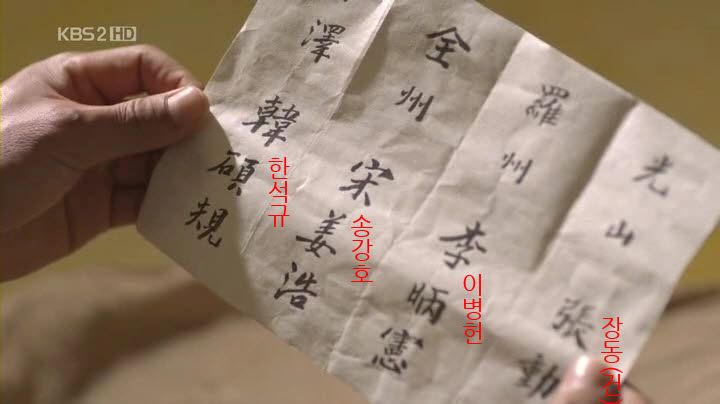 KBS2 HD
光山 張動
羅州 李昞憲
全州 宋姜浩
澤 韓碩規
장동(건
이병헌
송강호
한석규